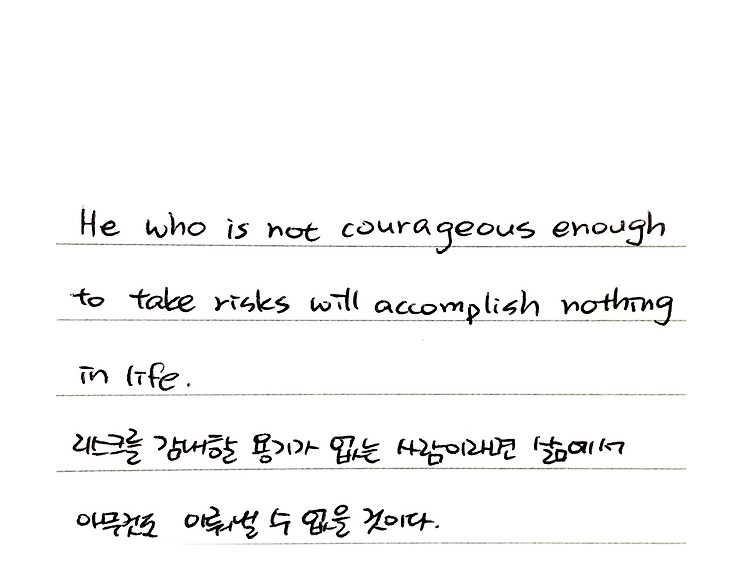 He who is not courageous enough
to take risks will accomplish nothing
in life.
리스크를 감내할 용기가 없는 사람이라면 삶에서
아무것도 이뤄낼 수 없을 것이다.